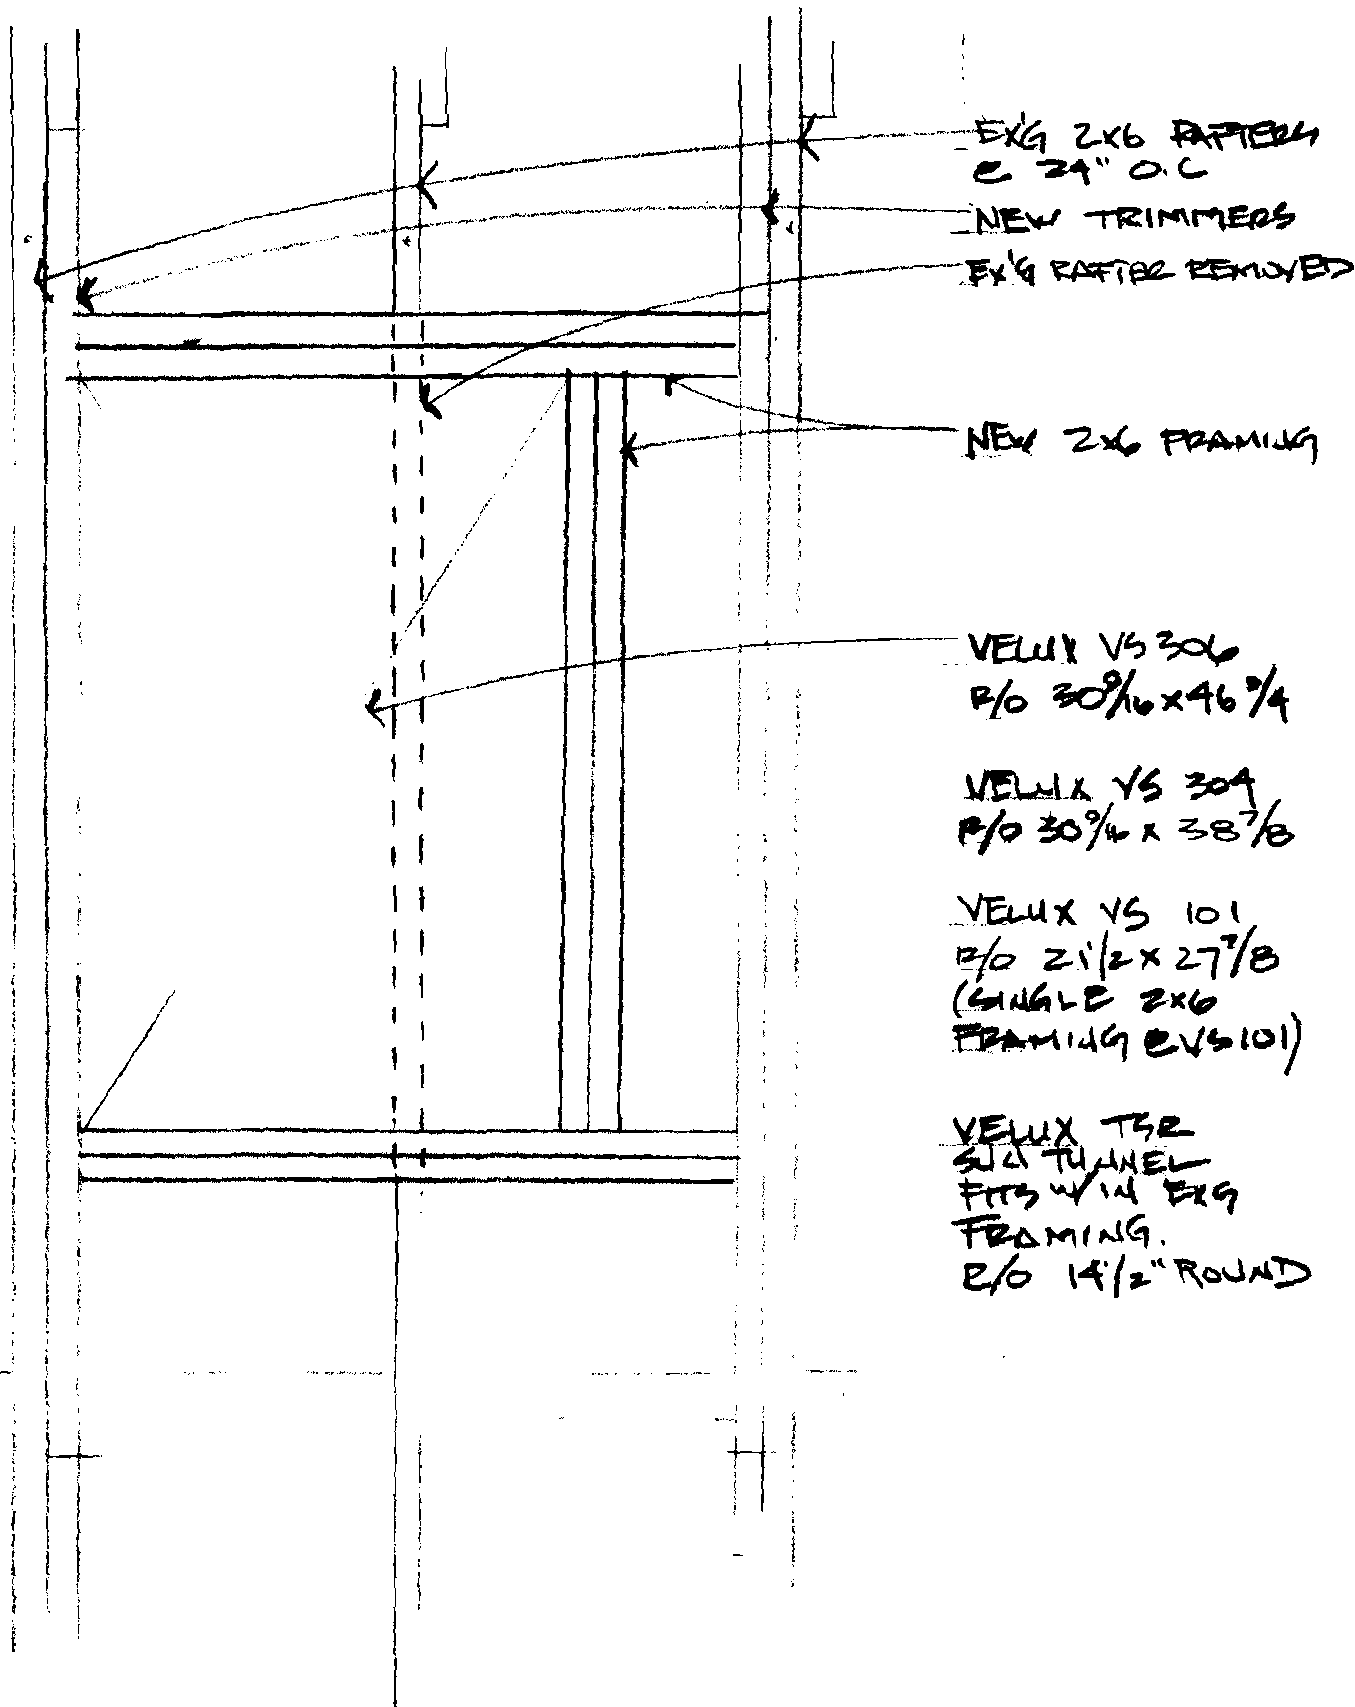 EX'G 2X6 RAFTERS
@ 24" O.C
NEW TRIMMERS
EX'G RAFTER REMOVED
NEW 2x6 FRAMING
VELUX VS 306
R/O 30 9/16 x 46 3/4
VELUX VS 304
R/O 30 9/16 x 38 7/8
VELUX VS 101
R/O 21 1/2 x 27 7/8
(SINGLE 2x6
FRAMING @ VS 101)
VELUX TSR
SUN TUNNEL
FITS W/IN EXG
FRAMING.
R/O 14 1/2" ROUND